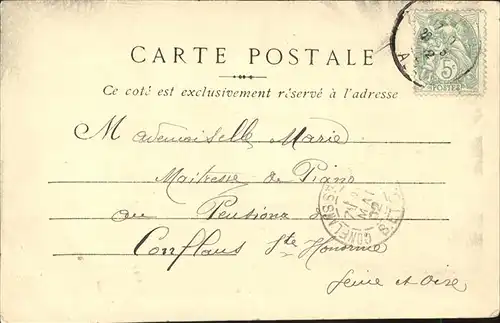 CARTE POSTALE
Ce coté est exclusivement réservé à l'adresse
Mademoiselle Marie
Maitresse de Piano
au Pensionnat
Conflans Ste Honorine
Seine et Oise
5c
POSTES
CONFLANS